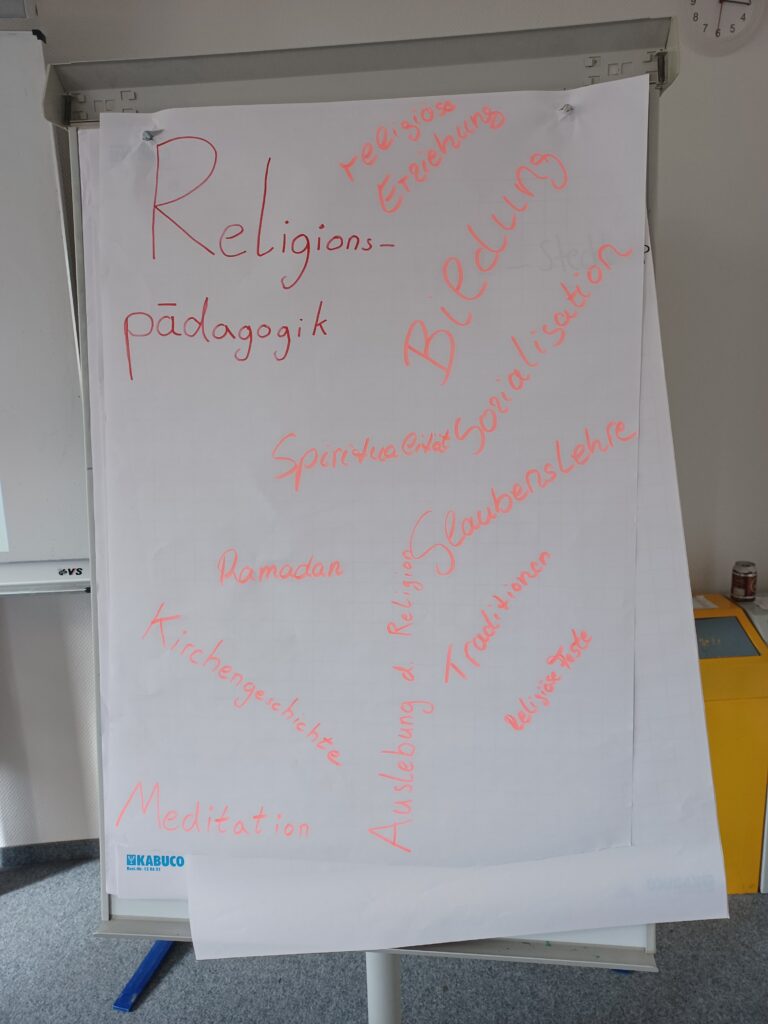 religiöse
Erziehung
Religions-
pädagogik
Bildung
Sozialisation
Spiritualität
Glaubenslehre
Ramadan
Auslebung d. Religion
Traditionen
Kirchengeschichte
Religiöse Feste
Meditation
KABUCO
VS